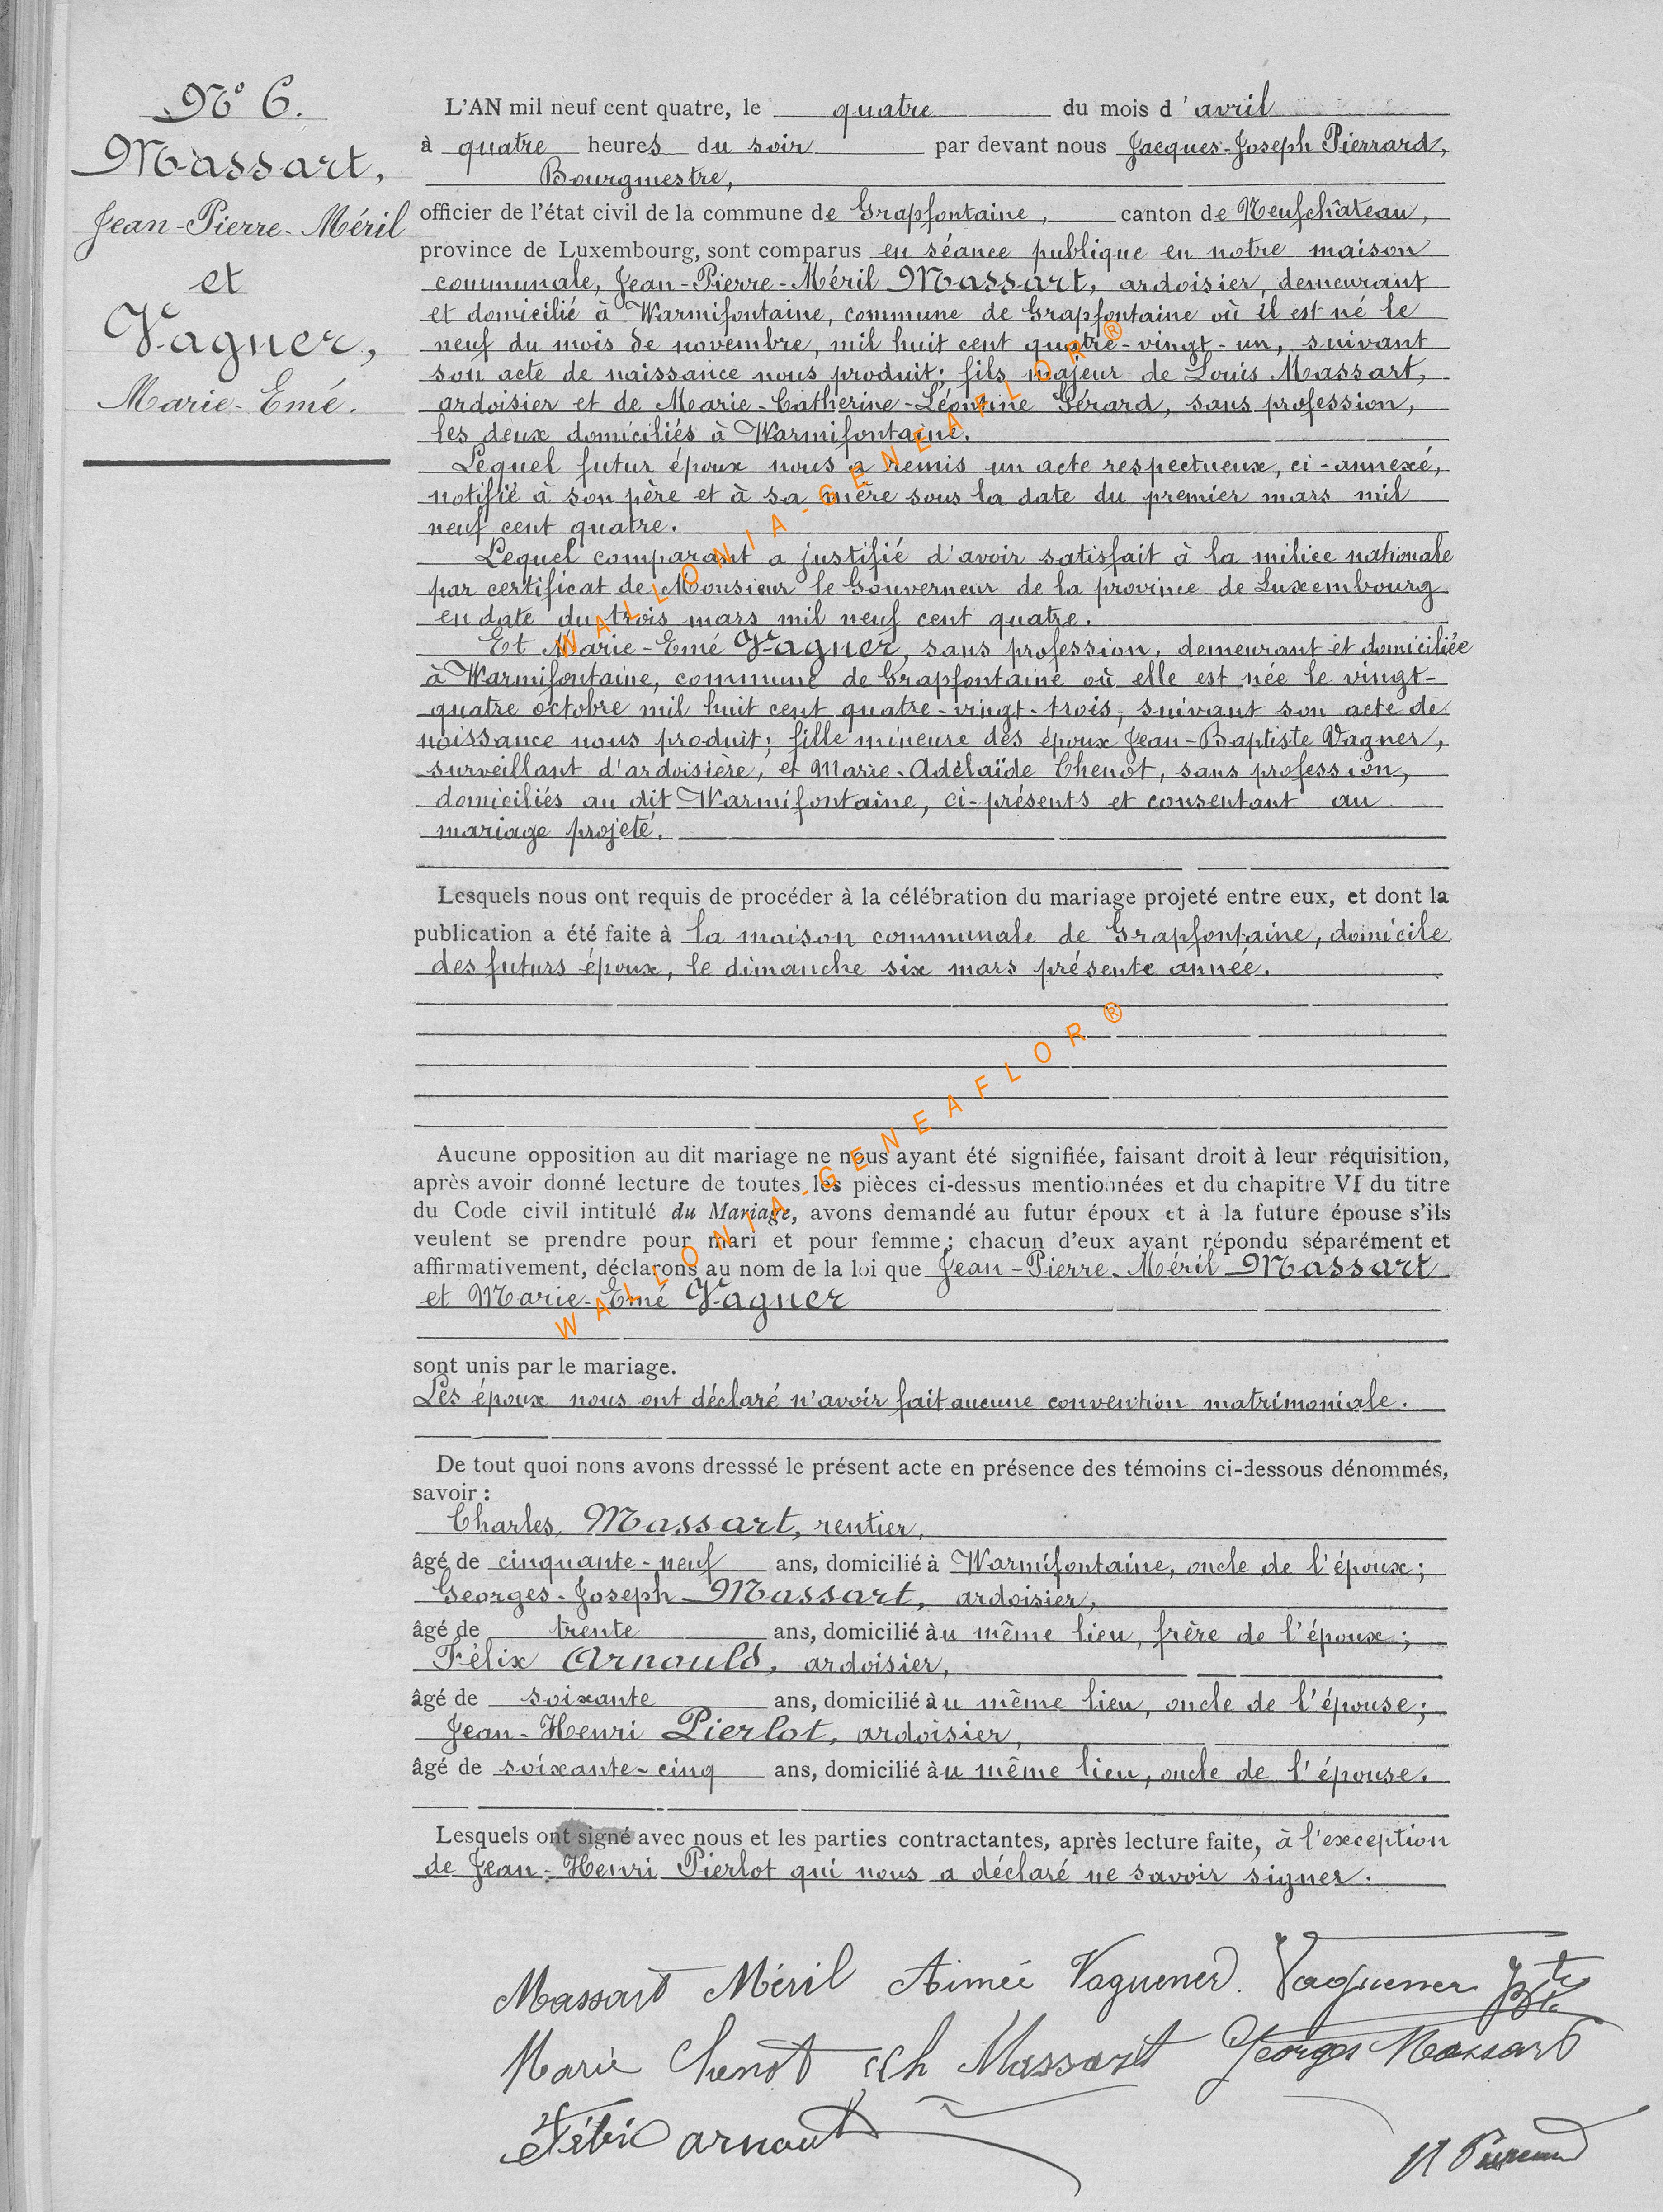 N° 6.
Massart,
Jean-Pierre-Méril
et
Vagner,
Marie-Emé.
L'AN mil neuf cent quatre, le quatre du mois d'avril
à quatre heures du soir par devant nous Jacques-Joseph Pierrard,
Bourgmestre,
officier de l'état civil de la commune de Grapfontaine, canton de Neufchâteau,
province de Luxembourg, sont comparus en séance publique en notre maison
communale, Jean-Pierre-Méril Massart, ardoisier, demeurant
et domicilié à Warmifontaine, commune de Grapfontaine où il est né le
neuf du mois de novembre, mil huit cent quatre-vingt-un, suivant
son acte de naissance nous produit; fils majeur de Louis Massart,
ardoisier et de Marie-Catherine-Léontine Gérard, sans profession,
les deux domiciliés à Warmifontaine.
Lequel futur époux nous a remis un acte respectueux, ci-annexé,
notifié à son père et à sa mère sous la date du premier mars mil
neuf cent quatre.
Lequel comparant a justifié d'avoir satisfait à la milice nationale
par certificat de Monsieur le Gouverneur de la province de Luxembourg
en date du trois mars mil neuf cent quatre.
Et Marie-Emé Vagner, sans profession, demeurant et domiciliée
à Warmifontaine, commune de Grapfontaine où elle est née le vingt-
quatre octobre mil huit cent quatre-vingt-trois, suivant son acte de
naissance nous produit; fille mineure des époux Jean-Baptiste Vagner,
surveillant d'ardoisière, et Marie-Adélaïde Chenot, sans profession,
domiciliés au dit Warmifontaine, ci-présents et consentant au
mariage projeté.
Lesquels nous ont requis de procéder à la célébration du mariage projeté entre eux, et dont la
publication a été faite à la maison communale de Grapfontaine, domicile
des futurs époux, le dimanche six mars présente année.
Aucune opposition au dit mariage ne nous ayant été signifiée, faisant droit à leur réquisition,
après avoir donné lecture de toutes les pièces ci-dessus mentionnées et du chapitre VI du titre
du Code civil intitulé du Mariage, avons demandé au futur époux et à la future épouse s'ils
veulent se prendre pour mari et pour femme; chacun d'eux ayant répondu séparément et
affirmativement, déclarons au nom de la loi que Jean-Pierre-Méril Massart
et Marie-Emé Vagner
sont unis par le mariage.
Les époux nous ont déclaré n'avoir fait aucune convention matrimoniale.
De tout quoi nons avons dresssé le présent acte en présence des témoins ci-dessous dénommés,
savoir :
Charles Massart, rentier,
âgé de cinquante-neuf ans, domicilié à Warmifontaine, oncle de l'époux;
Georges-Joseph Massart, ardoisier,
âgé de trente ans, domicilié àu même lieu, frère de l'époux;
Félix Arnould, ardoisier,
âgé de soixante ans, domicilié àu même lieu, oncle de l'épouse;
Jean-Henri Pierlot, ardoisier,
âgé de soixante-cinq ans, domicilié àu même lieu, oncle de l'épouse.
Lesquels ont signé avec nous et les parties contractantes, après lecture faite, à l'exception
de Jean-Henri Pierlot qui nous a déclaré ne savoir signer.
Massart Méril Aimée Vaguener. Vaguener Bte
Marie Chenot Ch Massart Georges Massart
Félix Arnould
WALLONIA-GENEAFLOR®
WALLONIA-GENEAFLOR®